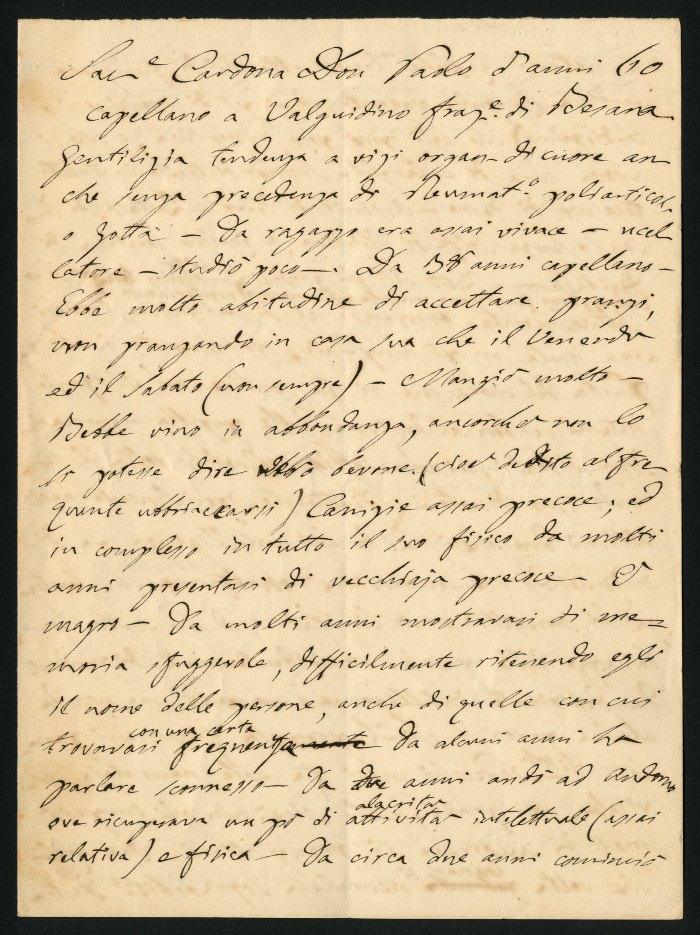 Sac.e Cardona Don Paolo d'anni 60
capellano a Valguidino fraz.e di Besana
Gentilizia tendenza a vizi organ- di cuore an
che senza precedenza di Reumat.o poliarticol.
o gotta - Da ragazzo era assai vivace - ucel
latore - studiò poco -. Da 38 anni capellano -
Ebbe molto abitudine di accettare pranzi,
non pranzando in casa sua che il Venerdì
ed il Sabato (non sempre) - Mangiò molto -
Bebbe vino in abbondanza, ancorchè non lo
si potesse dire bevone (cioè dedito al fre
quente ubbriaccarsi) Canizie assai precoce; ed
in complesso in tutto il suo fisico da molti
anni presentasi di vecchiaja precoce - È
magro - Da molti anni mostravasi di me=
moria sfuggevole, difficilmente ritenendo egli
il nome delle persone, anche di quelle con cui
con una certa
trovavasi frequenzamente Da alcuni anni ha
parlare sconnesso - Da due anni andò ad Andorno
alacrità
ove ricuperava un pò di attività intelettuale (assai
relativa) e fisica - Da circa due anni cominciò